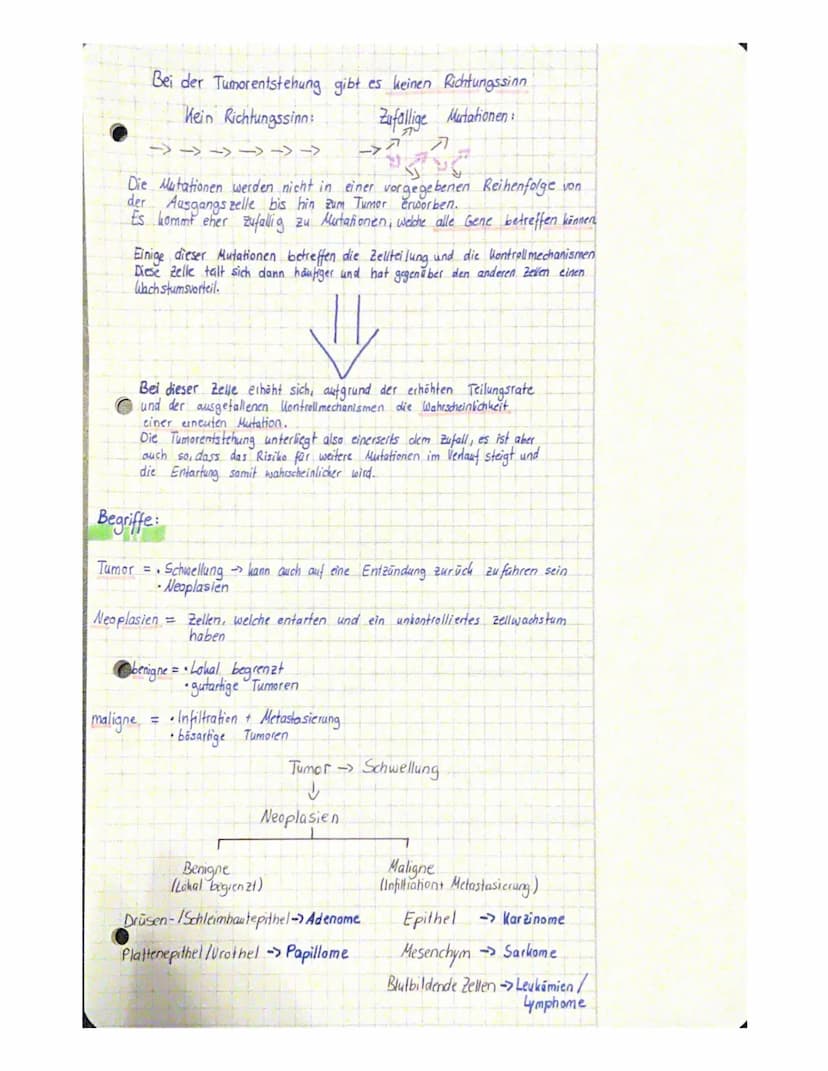 Bei der Tumorentstehung gibt es keinen Richtungssinn
Kein Richtungssinn: Zufällige Mutationen:
-> -> -> -> -> -> ->
Die Mutationen werden nicht in einer vorgegebenen Reihenfolge von
der Ausgangszelle bis hin zum Tumor erworben.
Es kommt eher zufällig zu Mutationen, welche alle Gene betreffen können
Einige dieser Mutationen betreffen die Zellteilung und die Kontrollmechanismen
Diese Zelle teilt sich dann häufiger und hat gegenüber den anderen Zellen einen
Wachstumsvorteil.
Bei dieser Zelle erhöht sich, aufgrund der erhöhten Teilungsrate
und der ausgefallenen Kontrollmechanismen die Wahrscheinlichkeit
einer erneuten Mutation.
Die Tumorentstehung unterliegt also einerseits dem Zufall, es ist aber
auch so, dass das Risiko für weitere Mutationen im Verlauf steigt und
die Entartung somit wahrscheinlicher wird.
Begriffe:
Tumor = • Schwellung -> kann auch auf eine Entzündung zurück zu führen sein
• Neoplasien
Neoplasien = Zellen, welche entarten und ein unkontrolliertes Zellwachstum
haben
benigne = • Lokal begrenzt
• gutartige Tumoren
maligne = • Infiltration + Metastasierung
• bösartige Tumoren
Tumor -> Schwellung
Neoplasien
Benigne Maligne
(Lokal begrenzt) (Infiltration+ Metastasierung)
Drüsen-/Schleimhautepithel -> Adenome Epithel -> Karzinome
Plattenepithel/Urothel -> Papillome Mesenchym -> Sarkome
Blutbildende Zellen -> Leukämien/
Lymphome